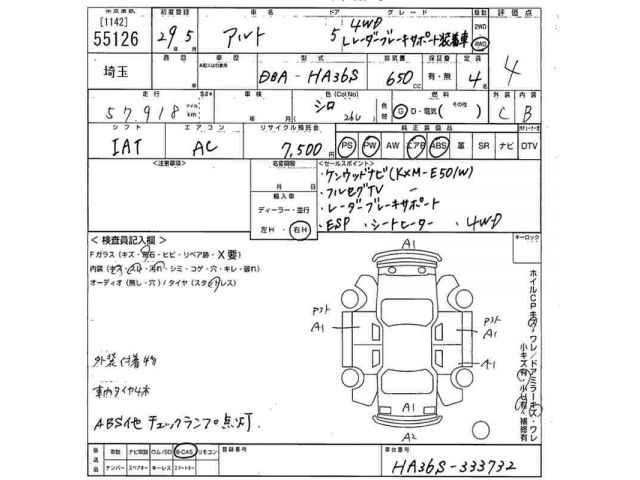 [1142]
初度登録 車名 ドア グレード 駆動 評価点
55126 29 5 アルト 5 4WD
Lレーダーブレーキサポート装着車 2WD 4WD 4
埼玉 車歴 型式 排気量 保証書 定員
月 DBA-HA36S 650 CC 有・無 4名
走行 車検 色(Color No) 燃料 外装 内装
57,918 km 年 月 シロ 26U 色替 G D・電気(その他) C B
シフト エアコン リサイクル預託金 純正装備品
IAT AC 7,500円 PS PW AW エアB ABS 革 SR ナビ DTV
<注意事項> 名変期限 <セールスポイント>
月 日 ・ケンウッドナビ(KXM-E501W)
輸入車 ・フルセグTV
ディーラー・並行 ・レーダーブレーキサポート
左H・右H ・ESP ・シートヒーター ・4WD
<検査員記入欄> キーロック
Fガラス(キズ・飛石・ヒビ・リペア跡・X要)
内装(キズ・スレ・汚れ・シミ・コゲ・穴・キレ・破れ)
オーディオ(無し・穴)/タイヤ(スタットレス)
A1
P外 A1 P外 A1
A1
A1
A2
ホイルCPキズ・ワレ/ドアミラーキズ・ワレ
小キズ有・小凹有・補修有
外装 付着物
車内タイヤ4本
ABS他 チェックランプ点灯
後送品 取説 ナビ取説 ロム/SD B-CAS リモコン 登録番号 車台番号
ナンバー スペアキー キーレス スマートキー HA36S-333732